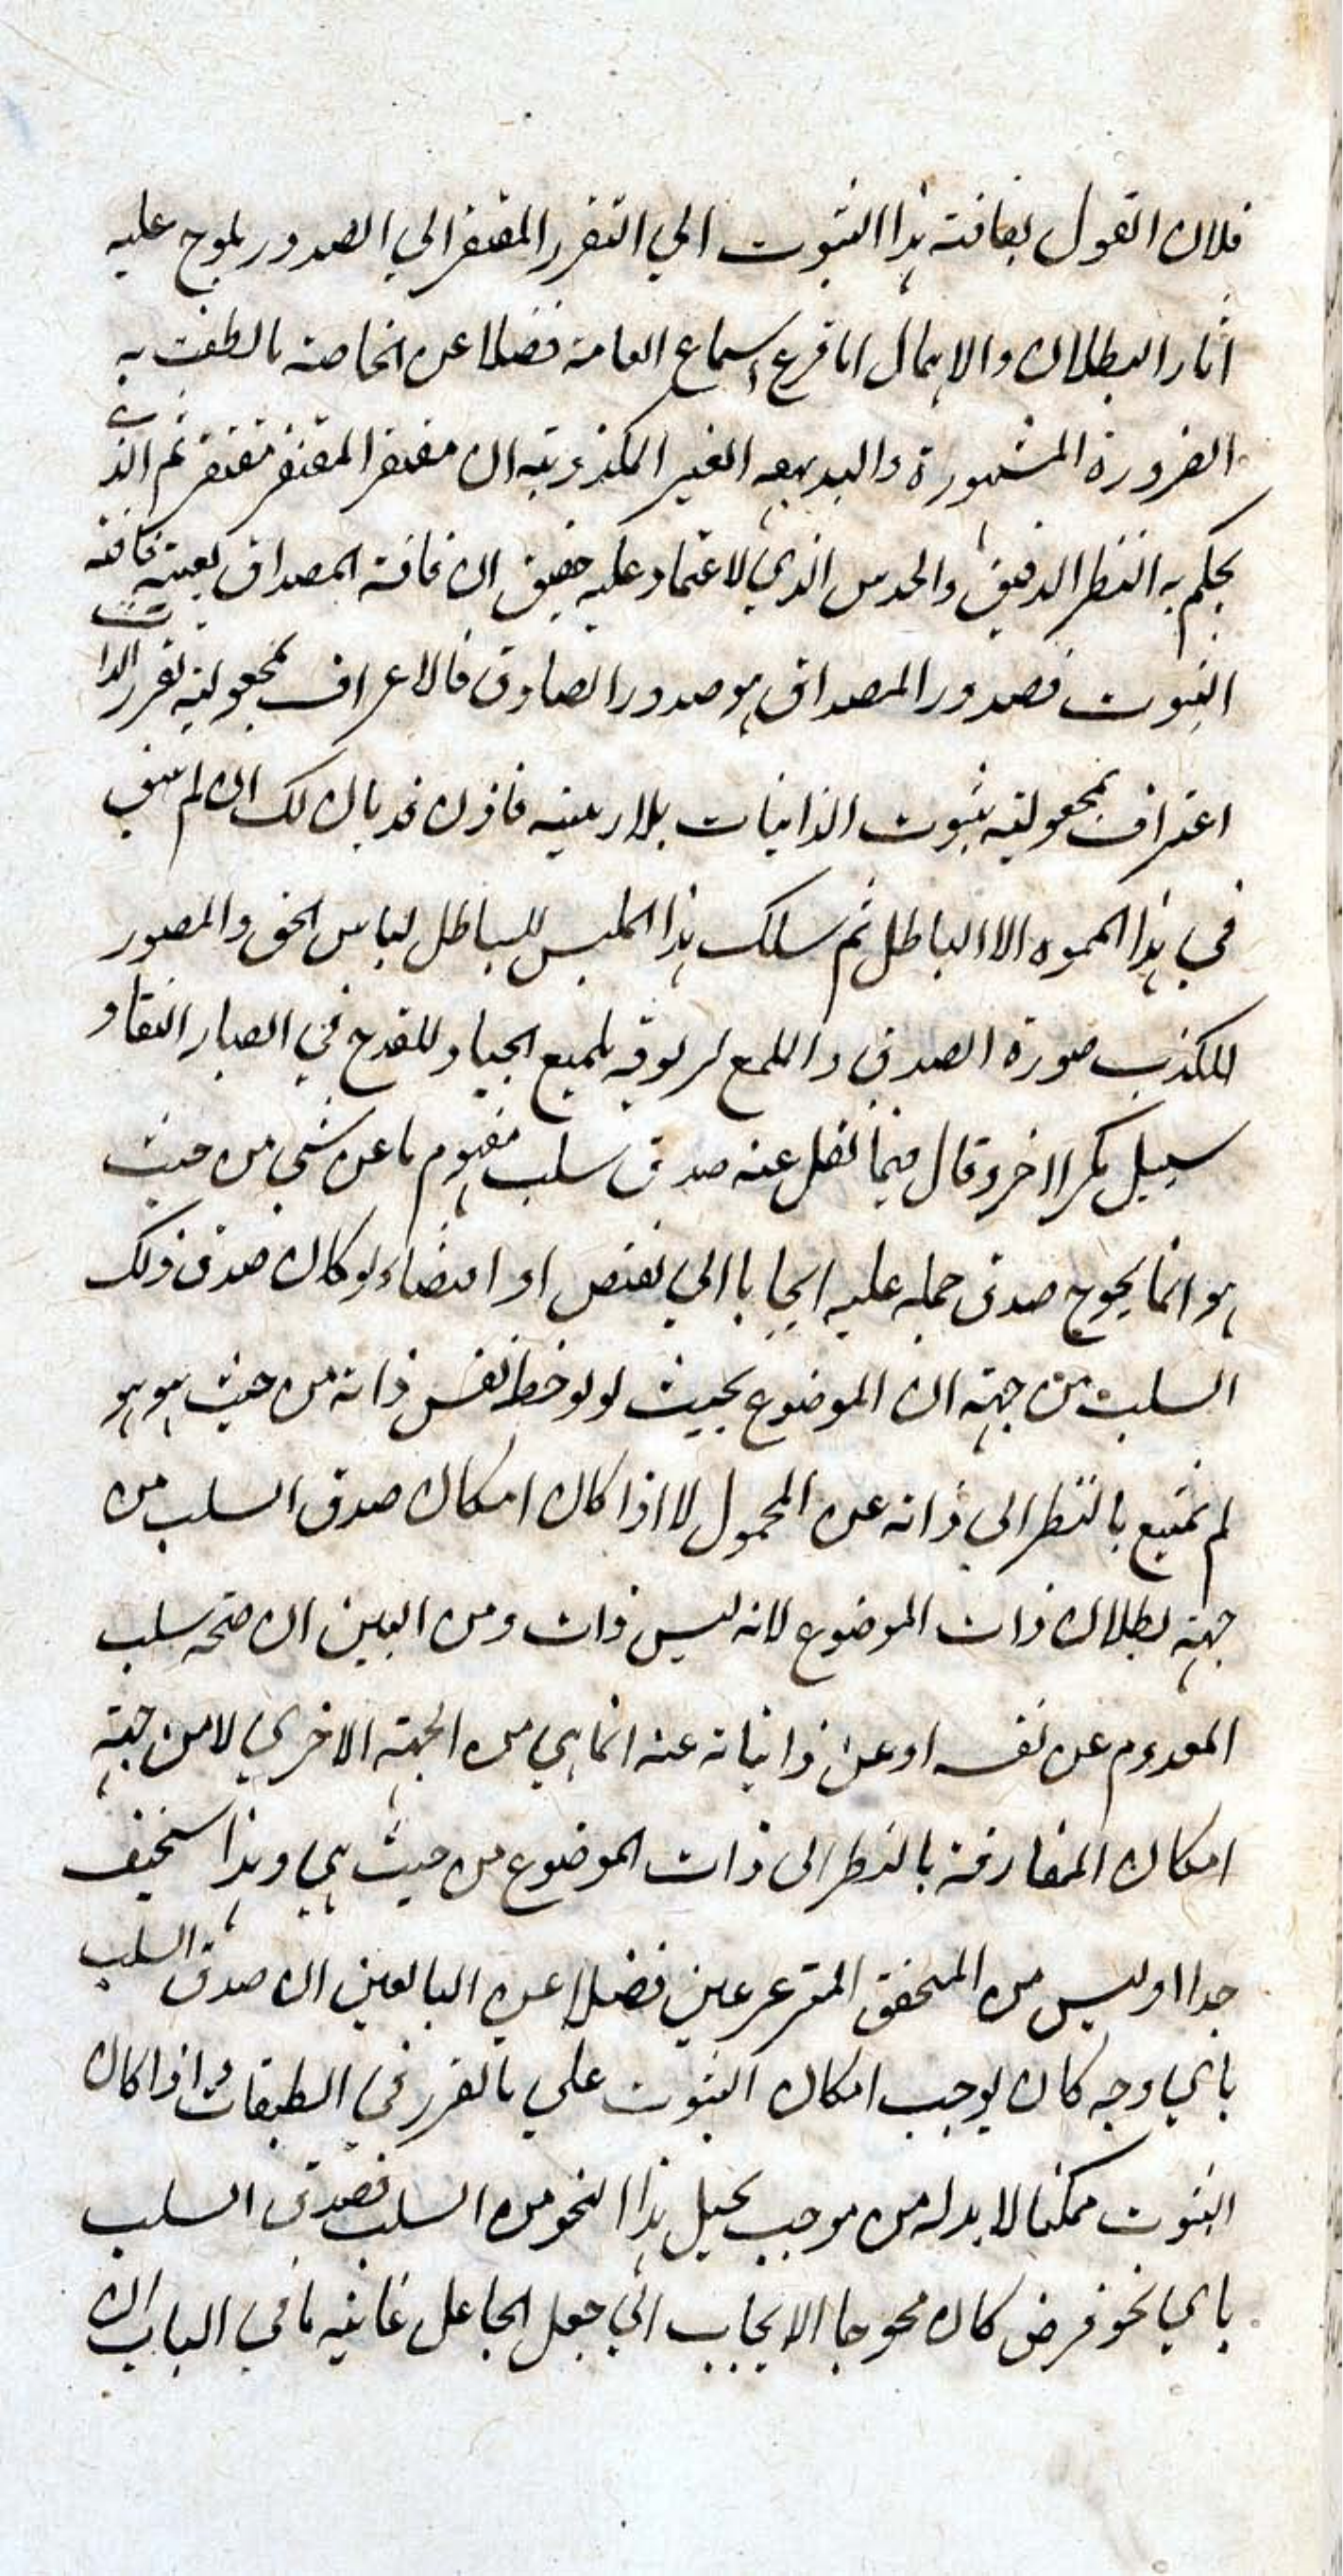 فلان القول بفاقته هذا الثبوت الي التقرر المفتقر الي الصدور يلوح عليه
اثار البطلان والاهمال اما قرع اسماع العامة فضلا عن الخاصة ما نطقت به
الضرورة المشهورة والبديهه الغير المكذوبته ان مفتقر المفتقر مفتقر ثم الذي
يحكم به النظر الدقيق والحدس الذي الاعتماد عليه حقيق ان فاقة المصداق بعينه فاقة
الثبوت فصدور المصداق هو صدور الصادق فالاعتراف بمجعولية تقرر الذات
اعتراف بمجعولية ثبوت الذاتيات بلا ريبة فاذن قد بان لك ان لم يبق
في هذا المموه الا الباطل ثم سلك هذا الملبس للباطل لباس الحق والمصور
للكذب صورة الصدق والملمع تلميع الجياد للقدح في النقاد
سبيل مكر اخر وقال فيما نقل عنه صدق سلب مفهوم ما عن شي من حيث
هو انما يحوج صدق حمله عليه ايجابا الي مقتض او اقتضاء لو كان صدق ذلك
السلب من جهة ان الموضوع بحيث لو لوحظ نفس ذاته من حيث هو هو
لم يمتنع بالنظر الي ذاته عن المحمول لا اذا كان امكان صدق السلب من
جهة بطلان ذات الموضوع لانه ليس ذات ومن البين ان صحة سلب
المعدوم عن نفسه او عن ذاتياته عنه انما هي من الجهة الاخري لا من جهة
امكان المفارقة بالنظر الى ذات الموضوع من حيث هي وهذا سخيف
جدا اوليس من المتحقق المترعرعين فضلا عن البالغين ان صدق السلب
باي وجه كان يوجب امكان الثبوت علي ما تقرر في الطبقات واذا كان
الثبوت ممكنا لا بد له من موجب يحيل هذا النحو من السلب فصدق السلب
باي نحو فرض كان محوجا الايجاب الي جعل الجاعل غاية ما في الباب ان